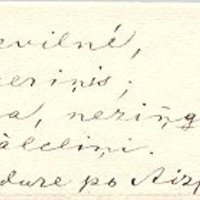 evilné,
eriņis;
a, neziņg
āleliņi.
dure po Aizp